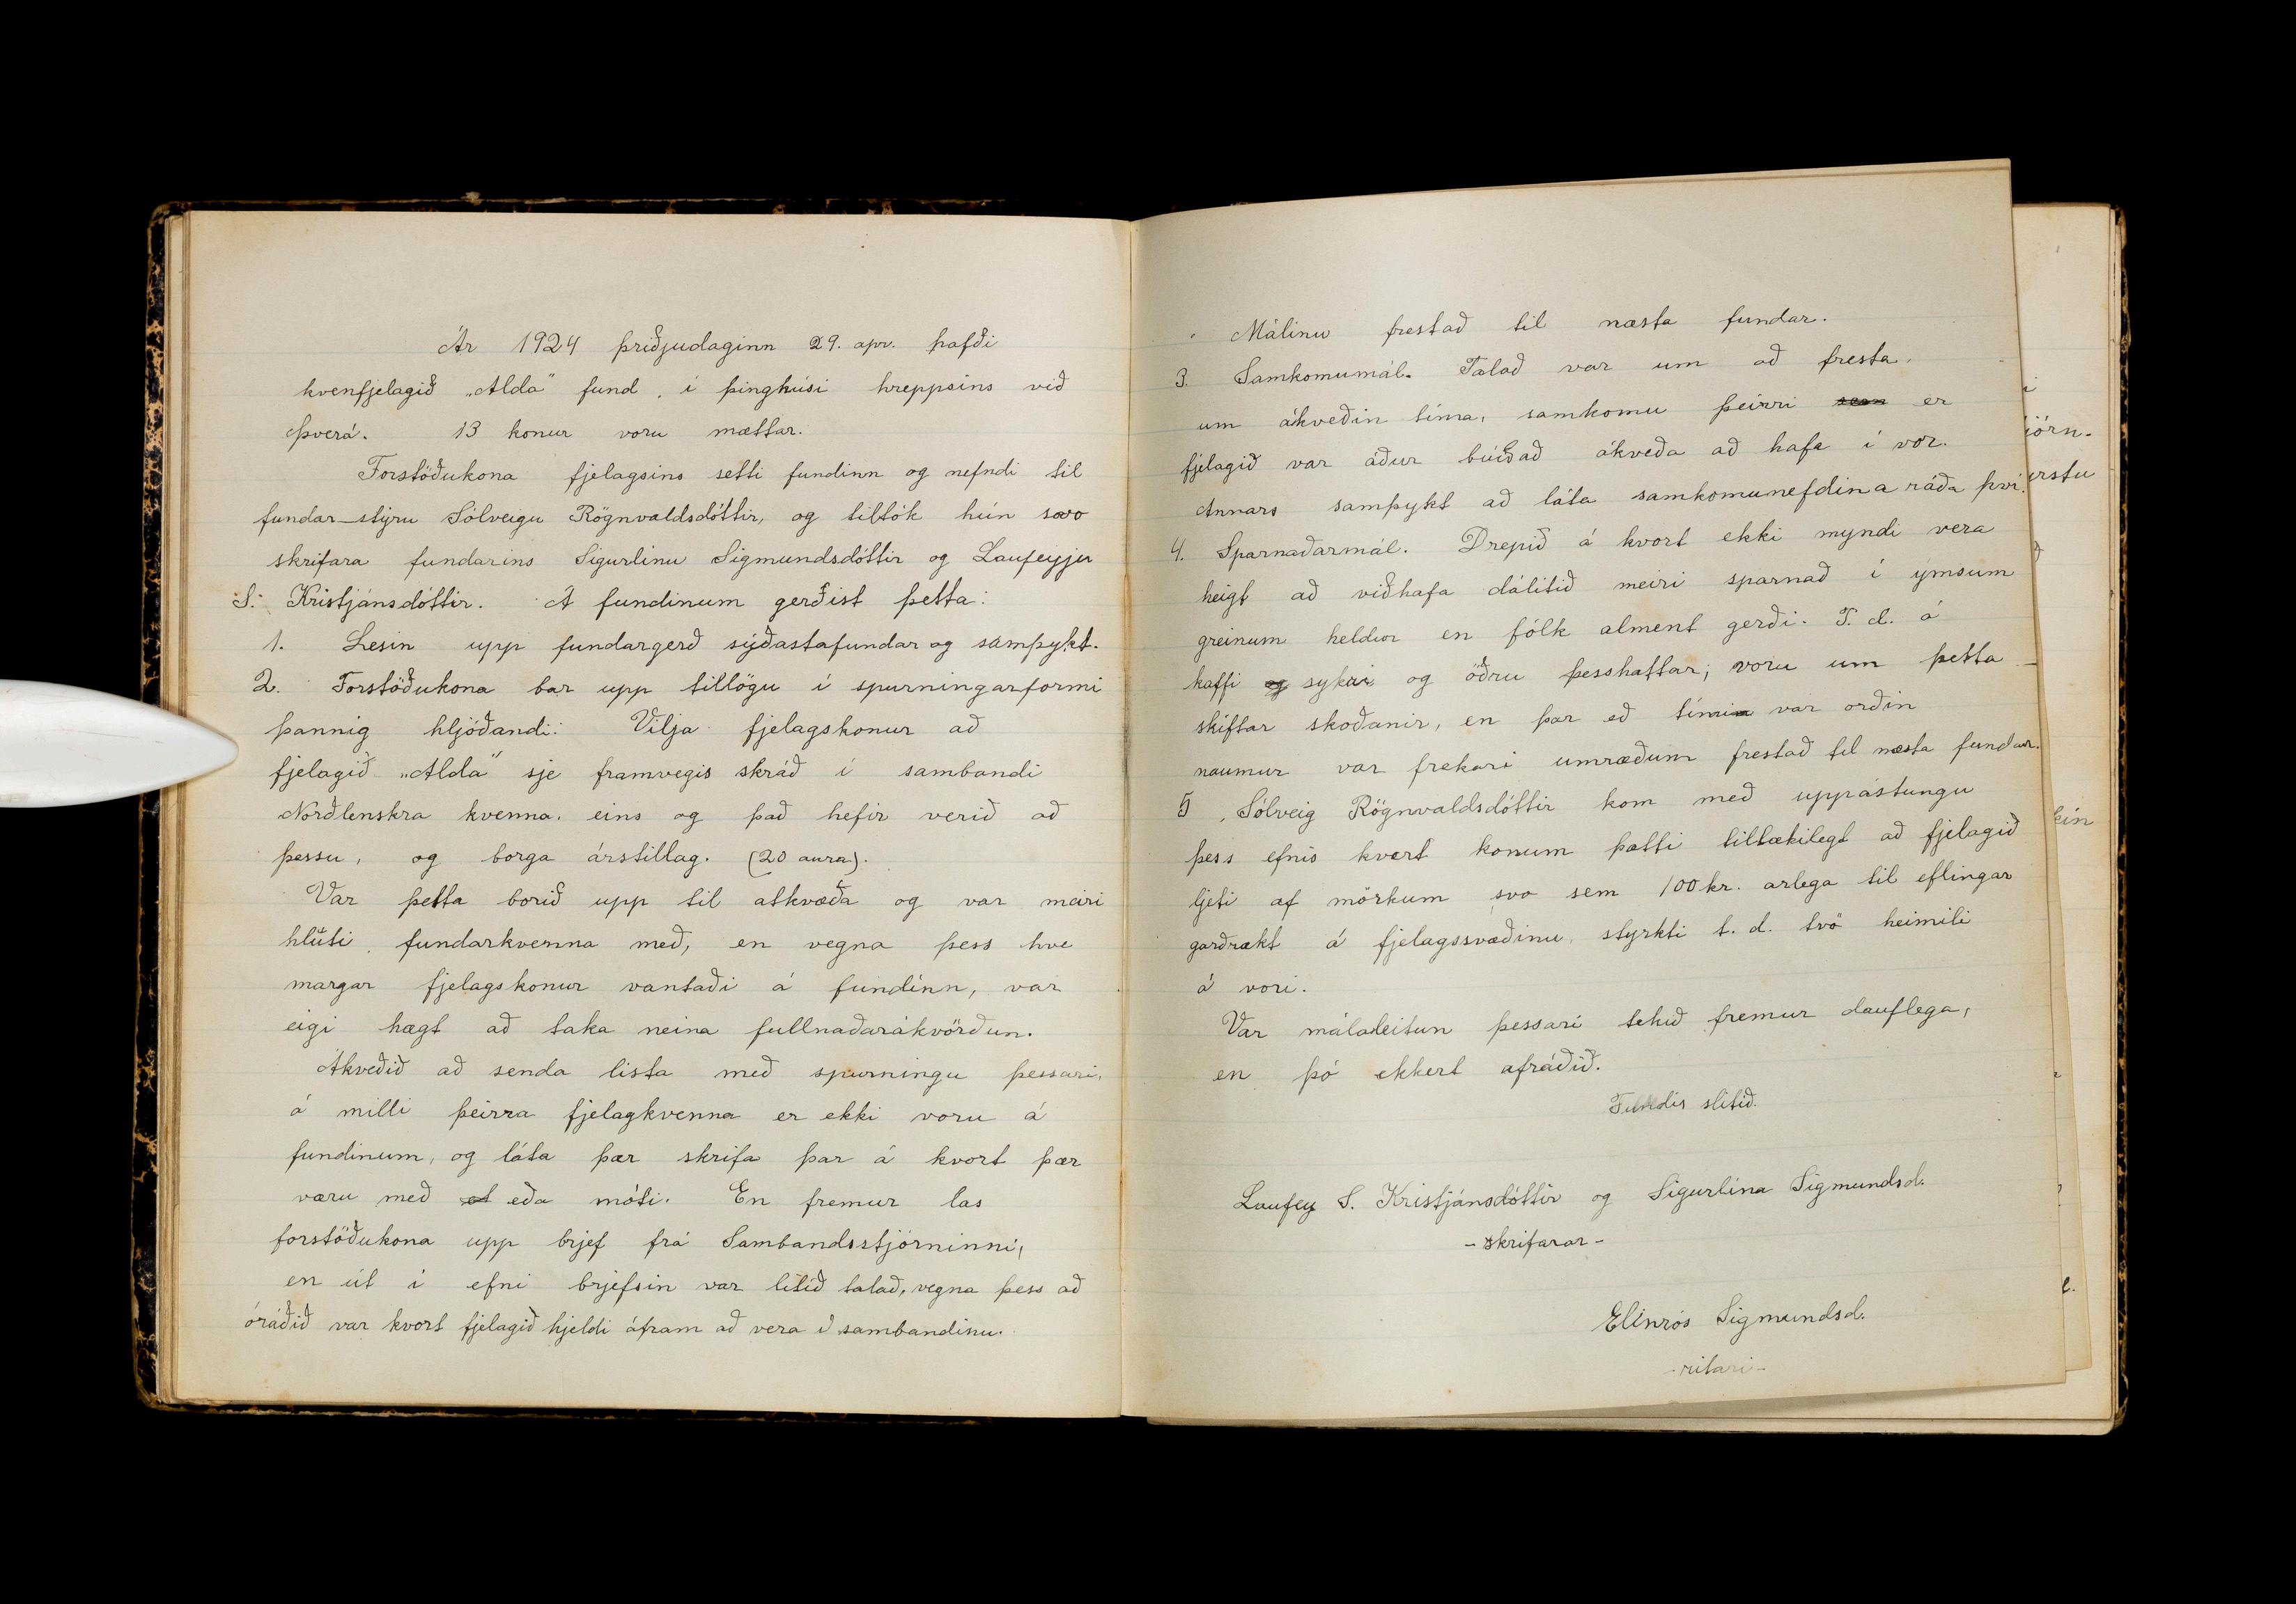 Ár 1924 þriðjudaginn 29. apr. hafði
kvenfjelagið „Alda" fund, í þinghúsi hreppsins við
Þverá. 13 konur voru mættar.
Forstöðukona fjelagsins setti fundinn og nefndi til
fundar-stýru Sólveigu Rögnvaldsdóttir, og tiltók hún svo
skrifara fundarins Sigurlínu Sigmundsdóttir og Laufeyju
S. Kristjánsdóttir. Á fundinum gerðist þetta:
1. Lesin upp fundargerð sýðastafundar og samþykt.
2. Forstöðukona bar upp tillögu í spurningarformi
þannig hljóðandi: Vilja fjelagskonur að
fjelagið „Alda" sje framvegis skráð í sambandi
Norðlenskra kvenna, eins og það hefir verið að
þessu, og borga árstillag. (20 aura).
Var þetta borið upp til atkvæða og var meiri
hluti fundarkvenna með, en vegna þess hve
margar fjelagskonur vantaði á fundinn, var
eigi hægt að taka neina fullnaðarákvörðun.
Ákveðið að senda lista með spurningu þessari,
á milli þeirra fjelagkvenna er ekki voru á
fundinum, og láta þær skrifa þar á hvort þær
væru með eða móti. En fremur las
forstöðukona upp brjef frá Sambandsstjórninni,
en út í efni brjefsin var lítið talað, vegna þess að
óráðið var hvort fjelagið hjeldi áfram að vera í sambandinu.
Málinu frestað til næsta fundar.
3. Samkomumál. Talað var um að fresta
um ákveðin tíma, samkomu þeirri sem er
fjelagið var áður búið að ákveða að hafa í vor.
Annars samþykt að láta samkomunefdina ráða því.
4. Sparnaðarmál. Drepið á hvort ekki myndi vera
heigt að viðhafa dálítið meiri sparnað í ýmsum
greinum heldur en fólk alment gerði. T.d. á
kaffi og sykri og öðru þesshattar; voru um þetta
skiftar skoðanir, en þar eð tími var orðin
naumur var frekari umræðum frestað til næsta fundar.
5. Sólveig Rögnvaldsdóttir kom með uppástungu
þess efnis hvert konum þætti tiltækilegt að fjelagið
ljeti af mörkum svo sem 100 kr. arlega til eflingar
garðrækt á fjelagssvæðinu, styrkti t.d. tvö heimili
á vori.
Var málaleitun þessari tekið fremur dauflega,
en þó ekkert afráðið.
Fundir slitið.
Laufey S. Kristjánsdóttir og Sigurlína Sigmundsd.
- skrifarar -
Elínrós Sigmundsd.
- ritari -